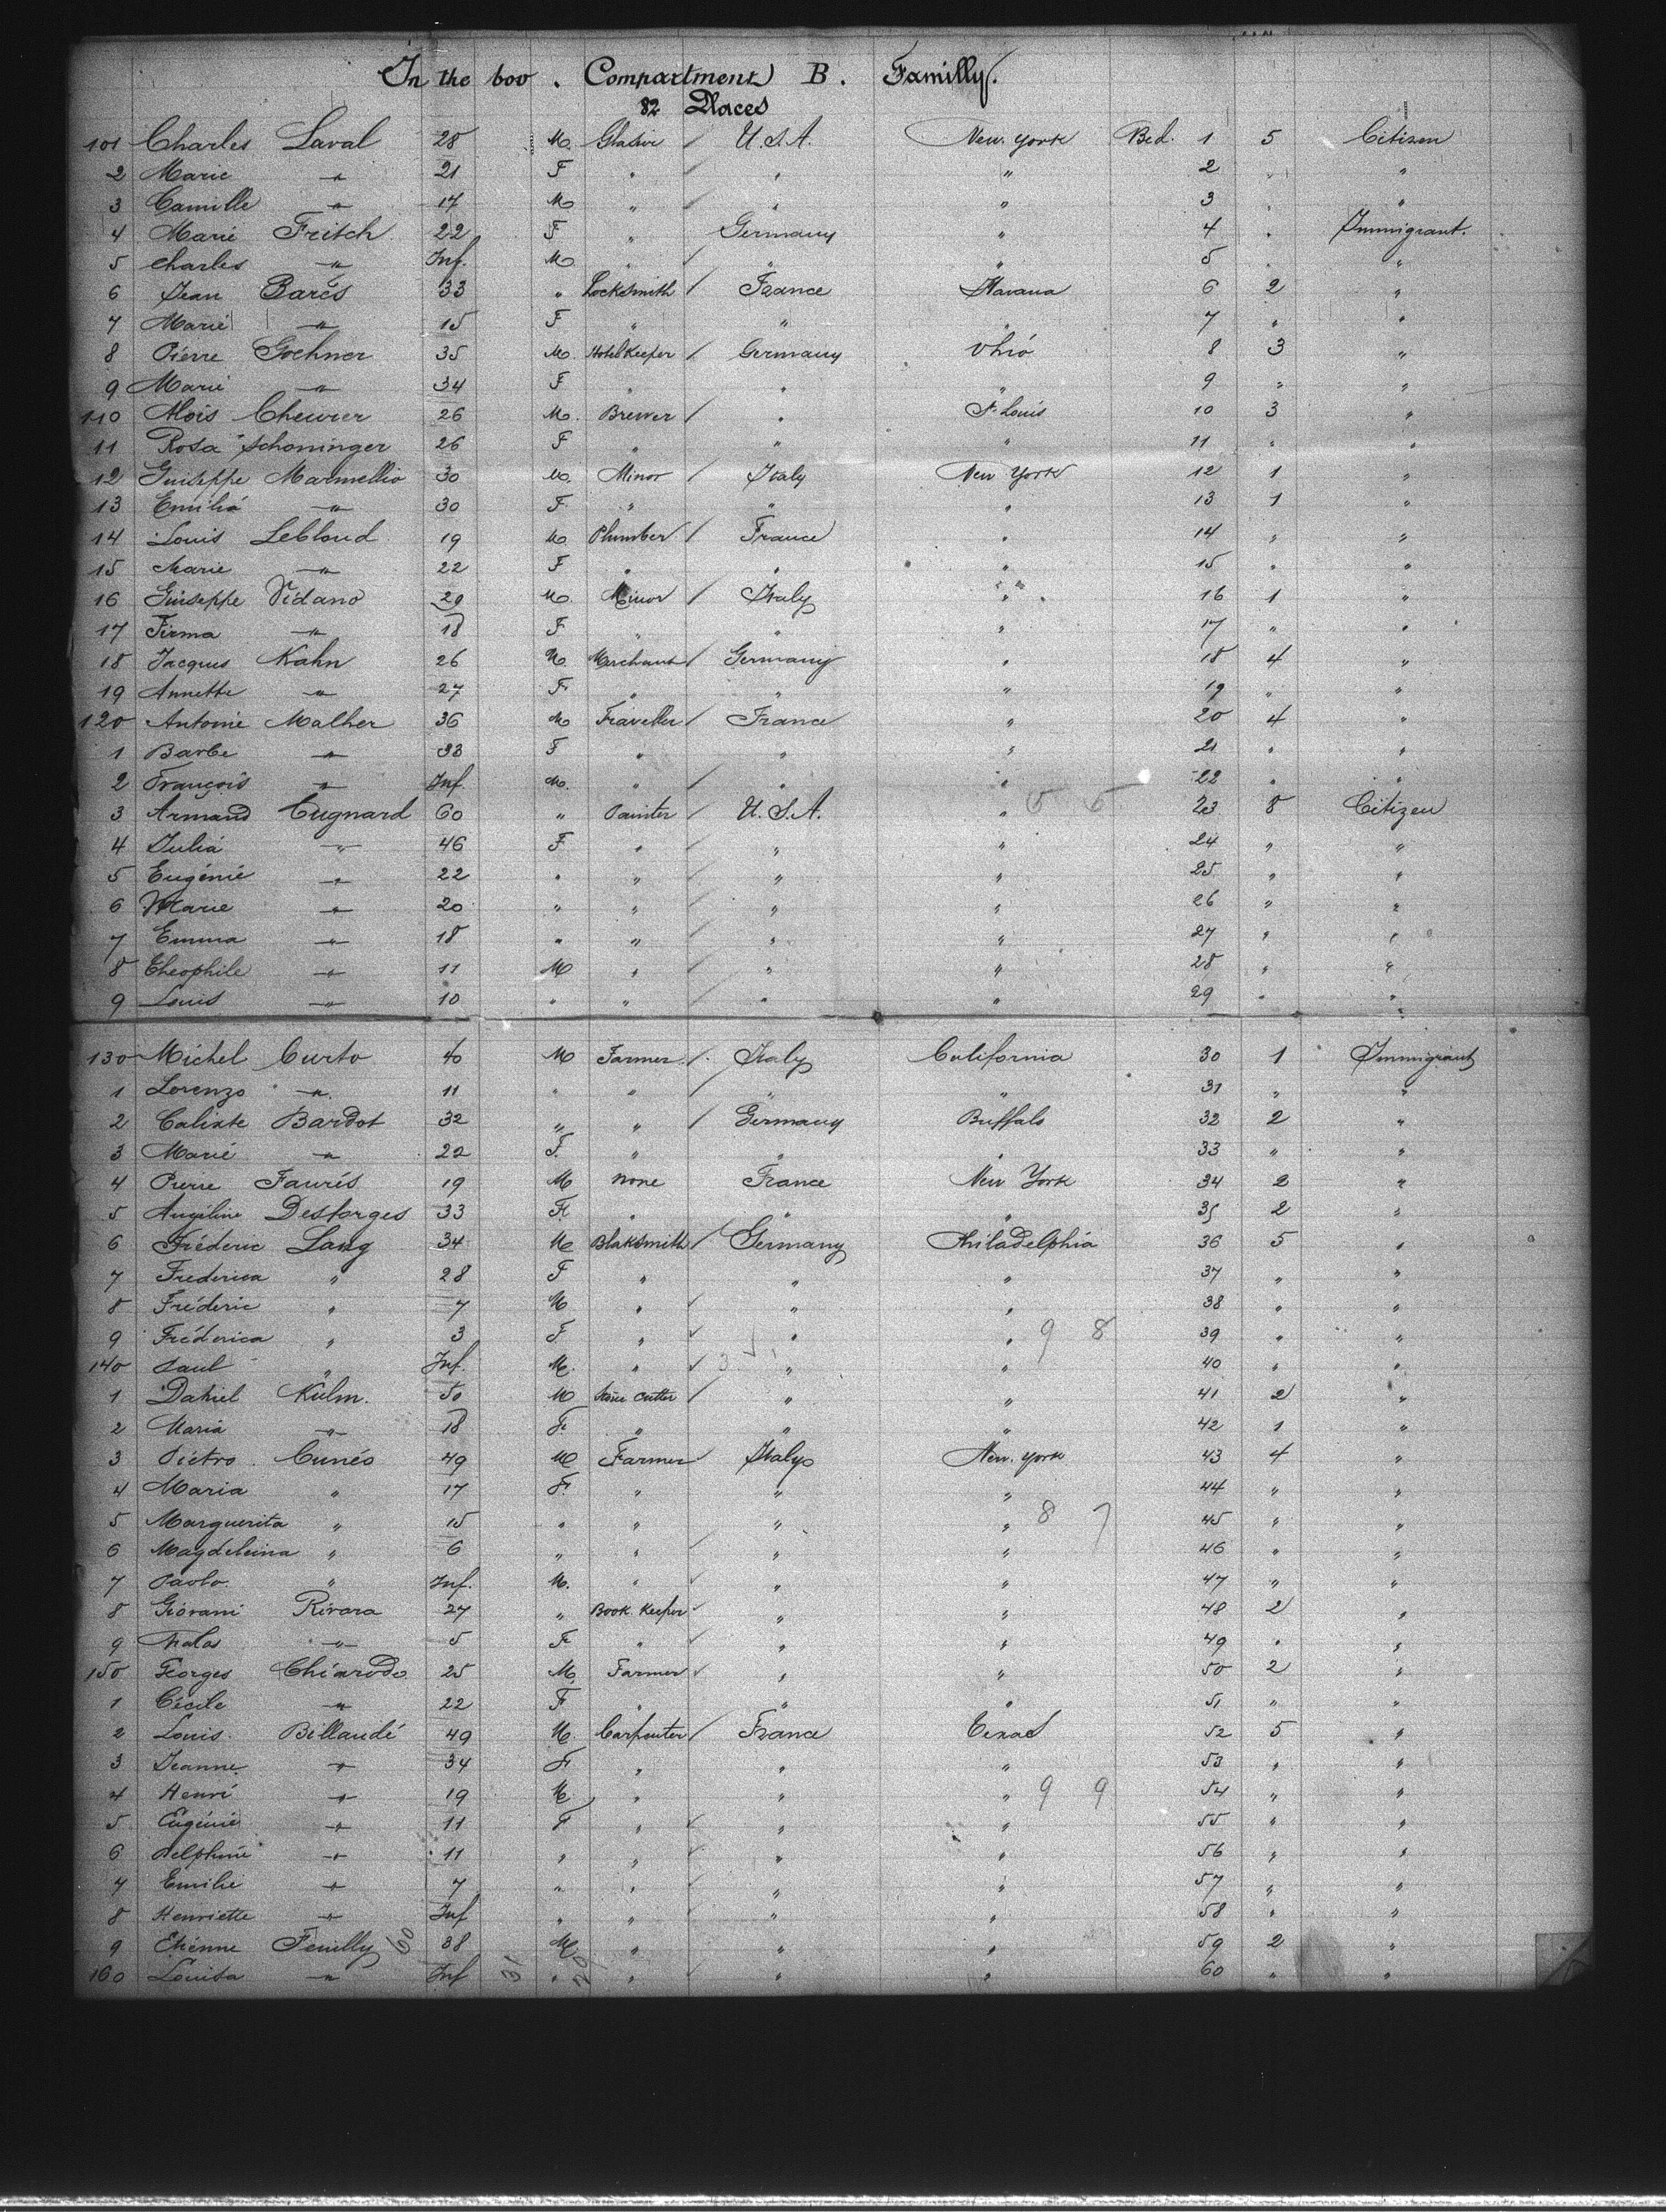 In the bow . Compartment B . Familly.
82 Places
101 Charles Laval 28 M. Glasier / U.S.A. New. York Bed. 1 5 Citizen
2 Marie " 21 F " / " " 2 " "
3 Camille " 17 M " / " " 3 " "
4 Marie Fritch 22 F " Germany " 4 " Immigrant.
5 Charles " Inf. M " / " " 5 " "
6 Jean Barés 33 " Locksmith / France Havana 6 2 "
7 Marie " 15 F " " " 7 " "
8 Pierre Gochner 35 M. Hotel Keeper / Germany Ohio 8 3 "
9 Marie " 34 F " " " 9 " "
110 Alois Cheurer 26 M. Brewer / " St Louis 10 3 "
11 Rosa Schoninger 26 F " " " 11 " "
12 Guiseppe Marmellio 30 M. Minor / Italy New York 12 1 "
13 Emilia " 30 F " " " 13 1 "
14 Louis Leblond 19 M Plumber / France " 14 " "
15 Marie " 22 F " " " 15 " "
16 Guiseppe Vidano 29 M. Minor / Italy " 16 1 "
17 Firma " 18 F " " " 17 " "
18 Jacques Kahn 26 M. Merchant / Germany " 18 4 "
19 Annette " 27 F. " " " 19 " "
120 Antoine Malher 36 M Traveller / France " 20 4 "
1 Barbe " 33 F " " " 21 " "
2 François " Inf. M. " / " " 22 " "
3 Armand Cugnard 60 " Painter / U.S.A. " 5 5 23 8 Citizen
4 Julia " 46 F " / " " 24 " "
5 Eugénie " 22 " " / " " 25 " "
6 Marie " 20 " " / " " 26 " "
7 Emma " 18 " " / " " 27 " "
8 Theophile " 11 M " / " " 28 " "
9 Louis " 10 " " / " " 29 " "
130 Michel Curto 40 M Farmer / Italy California 30 1 Immigrant
1 Lorenzo " 11 " " / " " 31 " "
2 Calixte Bardot 32 " " / Germany Buffalo 32 2 "
3 Marie " 22 F. " " " 33 " "
4 Pierre Faurés 19 M none France New York 34 2 "
5 Angéline Desforges 33 F. " " " 35 2 "
6 Fréderic Lang 34 M Blaksmith / Germany Philadelphia 36 5 "
7 Frederica " 28 F " " " 37 " "
8 Fréderic " 7 M " ✓ " " 38 " "
9 Fréderica " 3 F. " ✓ " " 9 8 39 " "
140 Paul " Inf. M. " ✓ " " 40 " "
1 Daniel Külm. 50 M Stone Cutter / " " 41 2 "
2 Maria " 18 F " " " 42 1 "
3 Piétro Cunéo 49 M Farmer Italy New. York 43 4 "
4 Maria " 17 F. " " " 44 " "
5 Marguerita " 15 " " " " 8 7 45 " "
6 Magdeleina " 6 " " ✓ " " 46 " "
7 Paolo. " Inf. M. " ✓ " " 47 " "
8 Giovani Rivara 27 " Book Keeper ✓ " " 48 2 "
9 " 5 F " ✓ " " 49 " "
150 Georges Chiarodo 25 M. Farmer ✓ " " 50 2 "
1 Cécile " 22 F " " " 51 " "
2 Louis. Billaudé 49 M. Carpenter / France Texas 52 5 "
3 Jeanne " 34 F " " " 53 " "
4 Henri " 19 M " " " 9 9 54 " "
5 Eugénie " 11 F " ✓ " " 55 " "
6 Delphine " 11 " " ✓ " " 56 " "
7 Emilie " 7 " " ✓ " " 57 " "
8 Henriette " Inf " " ✓ " " 58 " "
9 Etienne Feuilly 60 38 M " " " 59 2 "
160 Louisa " Inf 31 " 29 " " " 60 " "